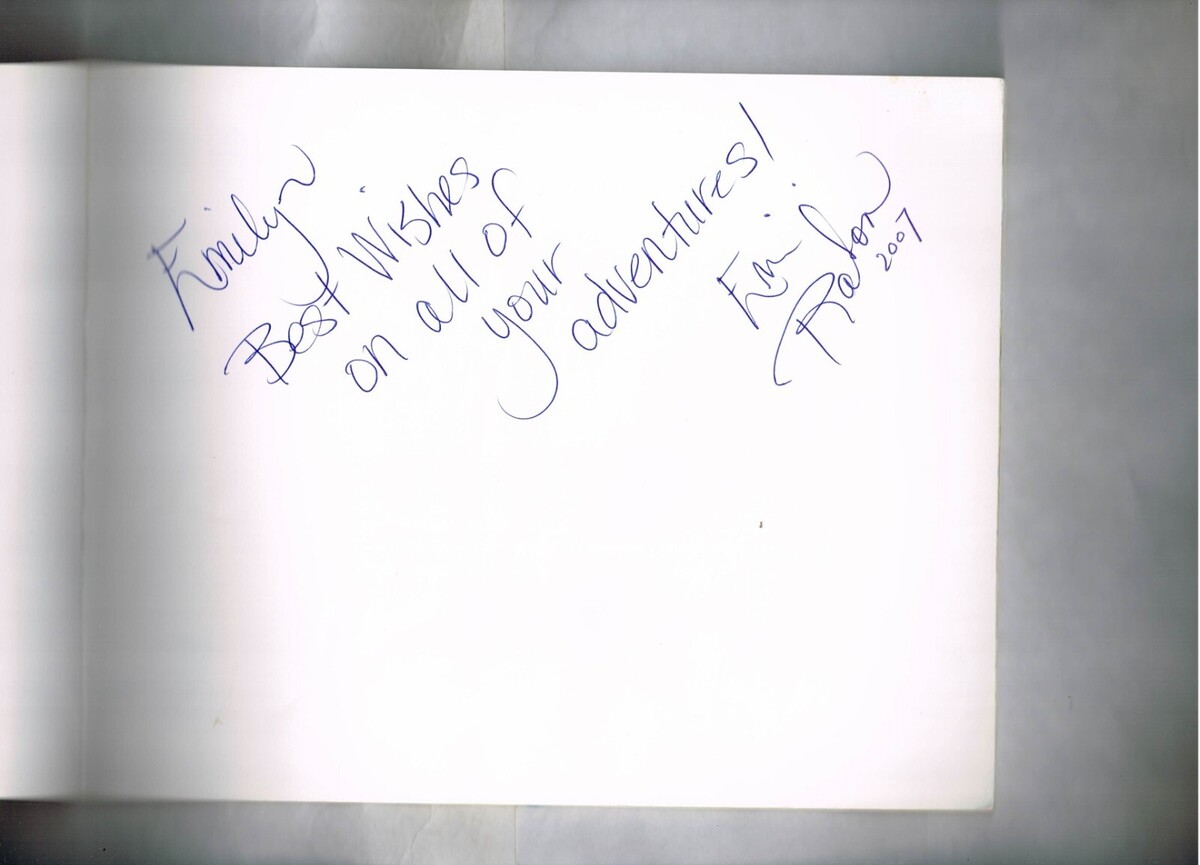 Emily
Best Wishes
on all of
your
adventures!
2007